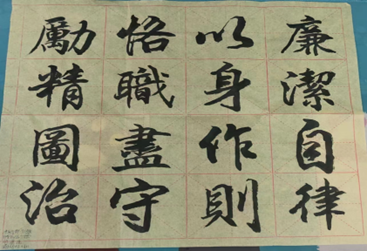 廉潔自律
以身作則
恪職盡守
勵精圖治